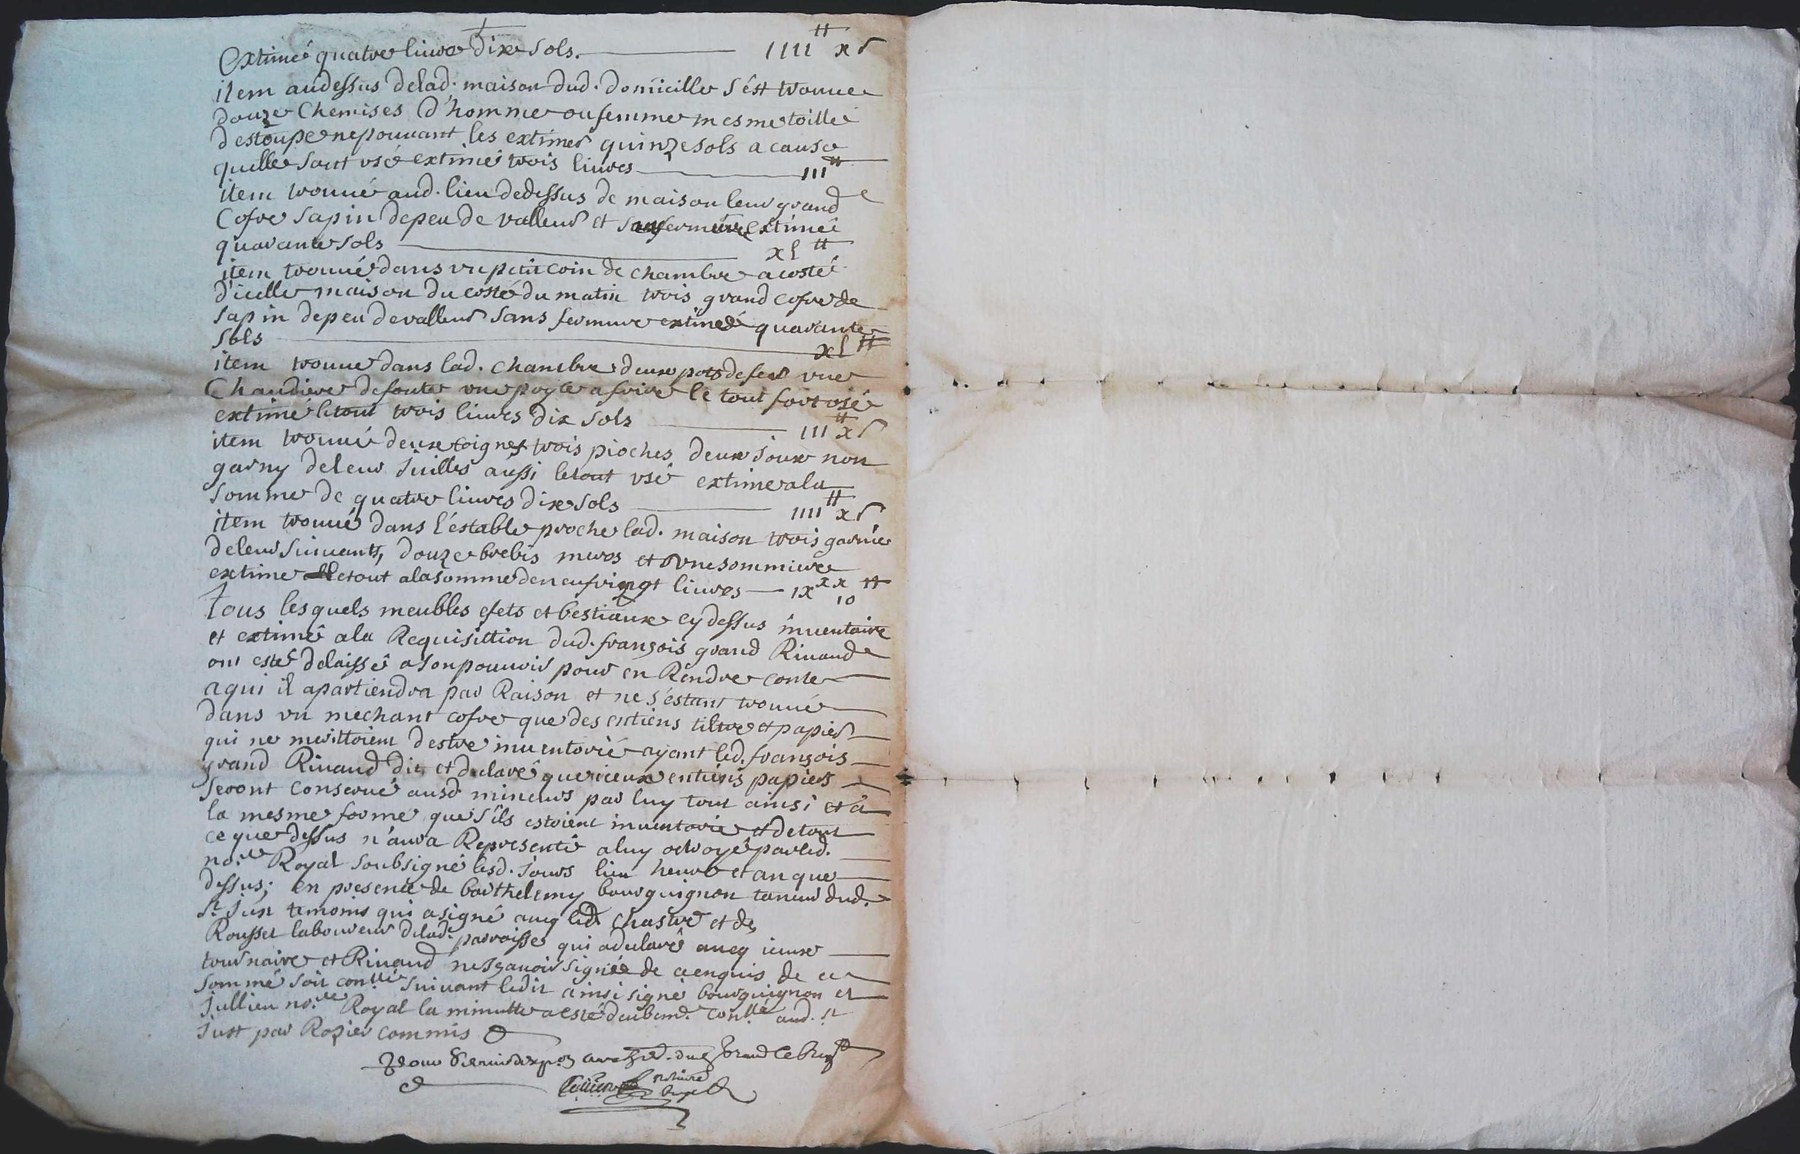 extimé quatre livre dix sols. IIII ₶ x s
item audessus delad. maison dud. domicille sést trouve
douze Chemises d'homme ou femme mesme toille
destoupe ne pouvant les extimer quinze sols a cause
quelle sont usé extimé trois livres III ₶
item trouvé aud. lieu dedessus de maison leur grand
Cofre sapin depeu de valleur et sans fermure extimeé
quarante sols xl ₶
item trouvé dans un petit coin de chambre a costé
d'icelle maison du costé du matin trois grand cofre de
sapin depeu devalleur sans fermure extimeé quarante
sols xl ₶
item trouve dans lad. chambre deux pots de fer une
Chaudiere defonte une poyle a frire le tout fort usé
extimé letout trois livres dix sols III ₶ x s
item trouvé deux trois pioches deux non
garny deleur aussi letout usé extime a la
somme de quatre livres dix sols IIII ₶ x s
item trouvé dans l'éstable proche lad. maison trois garnie
deleur suivants, douze brebis et une
extime letout alasomme deneufvingt livres IX xx ₶
10
Tous lesquels meubles efets et bestiaux cy dessus inventaire
et extimé ala Requisittion dud. françois grand Rivaud
ont esté delaissé a son pouvoir pour en Rendre conte
a qui il apartiendra par Raison et ne s'éstant trouvé
dans un mechant cofre que des entiens tiltre et papier
qui ne merittoient d'estre inventorié ayant led. françois
grand Rivaud dit et declaré que iceux entiens papiers
seront conservé ausd. mineurs par luy tout ainsi et à
la mesme forme que s'ils estoient inventorié et detout
ce que dessus n'aura Representé aluy octroyé parled.
no.re Royal soubsigné lesd. jours lieu heure et an que
dessus; en presence de barthelemy bourguignon taneur dud.
St. Just temoins qui a signé aveq led. Chastre et de
Rousset laboureur delad. parroisse qui a declaré avecq ieux
tournaire et Rivaud ne sçavoir signée de ce enquis de ce
sommé soit conllé suivant ledit ainsi signé bourguignon et
jullien no.re Royal la minutte a esté deubemt. conllé aud. St
Just par Rozier commis